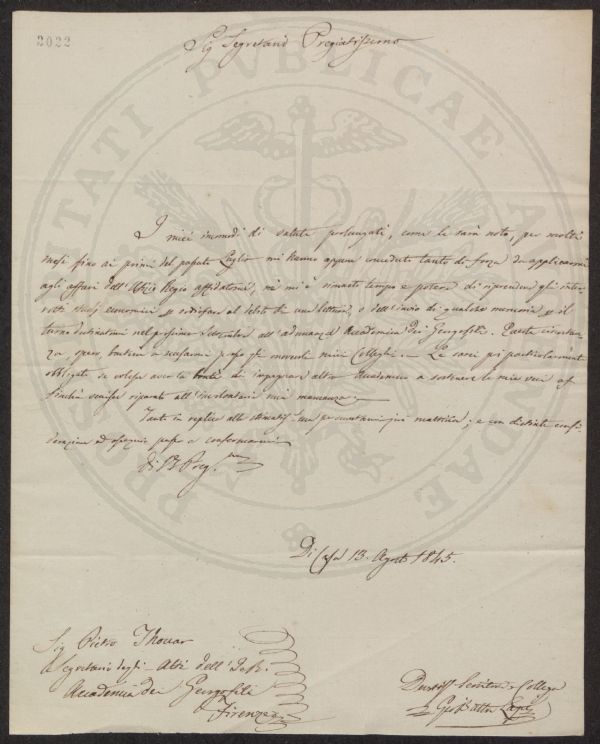 2022
Sig Segretario Pregiatissimo
I miei incomodi di salute prolungati, come le sarà noto, per molti
mesi fino ai primi del passato Luglio mi hanno appena conceduto tanto di forza da applicarmi
agli affari dell'Ufizio Regio affidatomi, nè mi è rimasto tempo e potere di riprendere gli inter-
rotti studj economici e sodisfare al debito di una lettura, o dell'invio di qualche memoria pel
turno destinatomi nel prossimo all'adunanza Accademica dei Georgofili. Questa circostan-
za, spero, basterà a scusarmi presso gli onorevoli miei Colleghi. Le sarei poi particolarmente
obbligato se volesse aver la bontà di impegnare altro Accademico a sostenere le mie veci af-
finchè venisse riparato all'involontaria mia mancanza.
Tanto in replica alla mattina; e con distinta consi-
derazione ed ossequio passo a confermarmi
di V. S. Preg.ma
Di Casa 13. Agosto 1845.
Sig Pietro Thouar
Segretario degli Atti dell'I. e R.
Accademia dei Georgofili
Firenze
Servitore e Collega
Gio Batta Lapi
PROSPERITATI PUBLICAE AUGENDAE